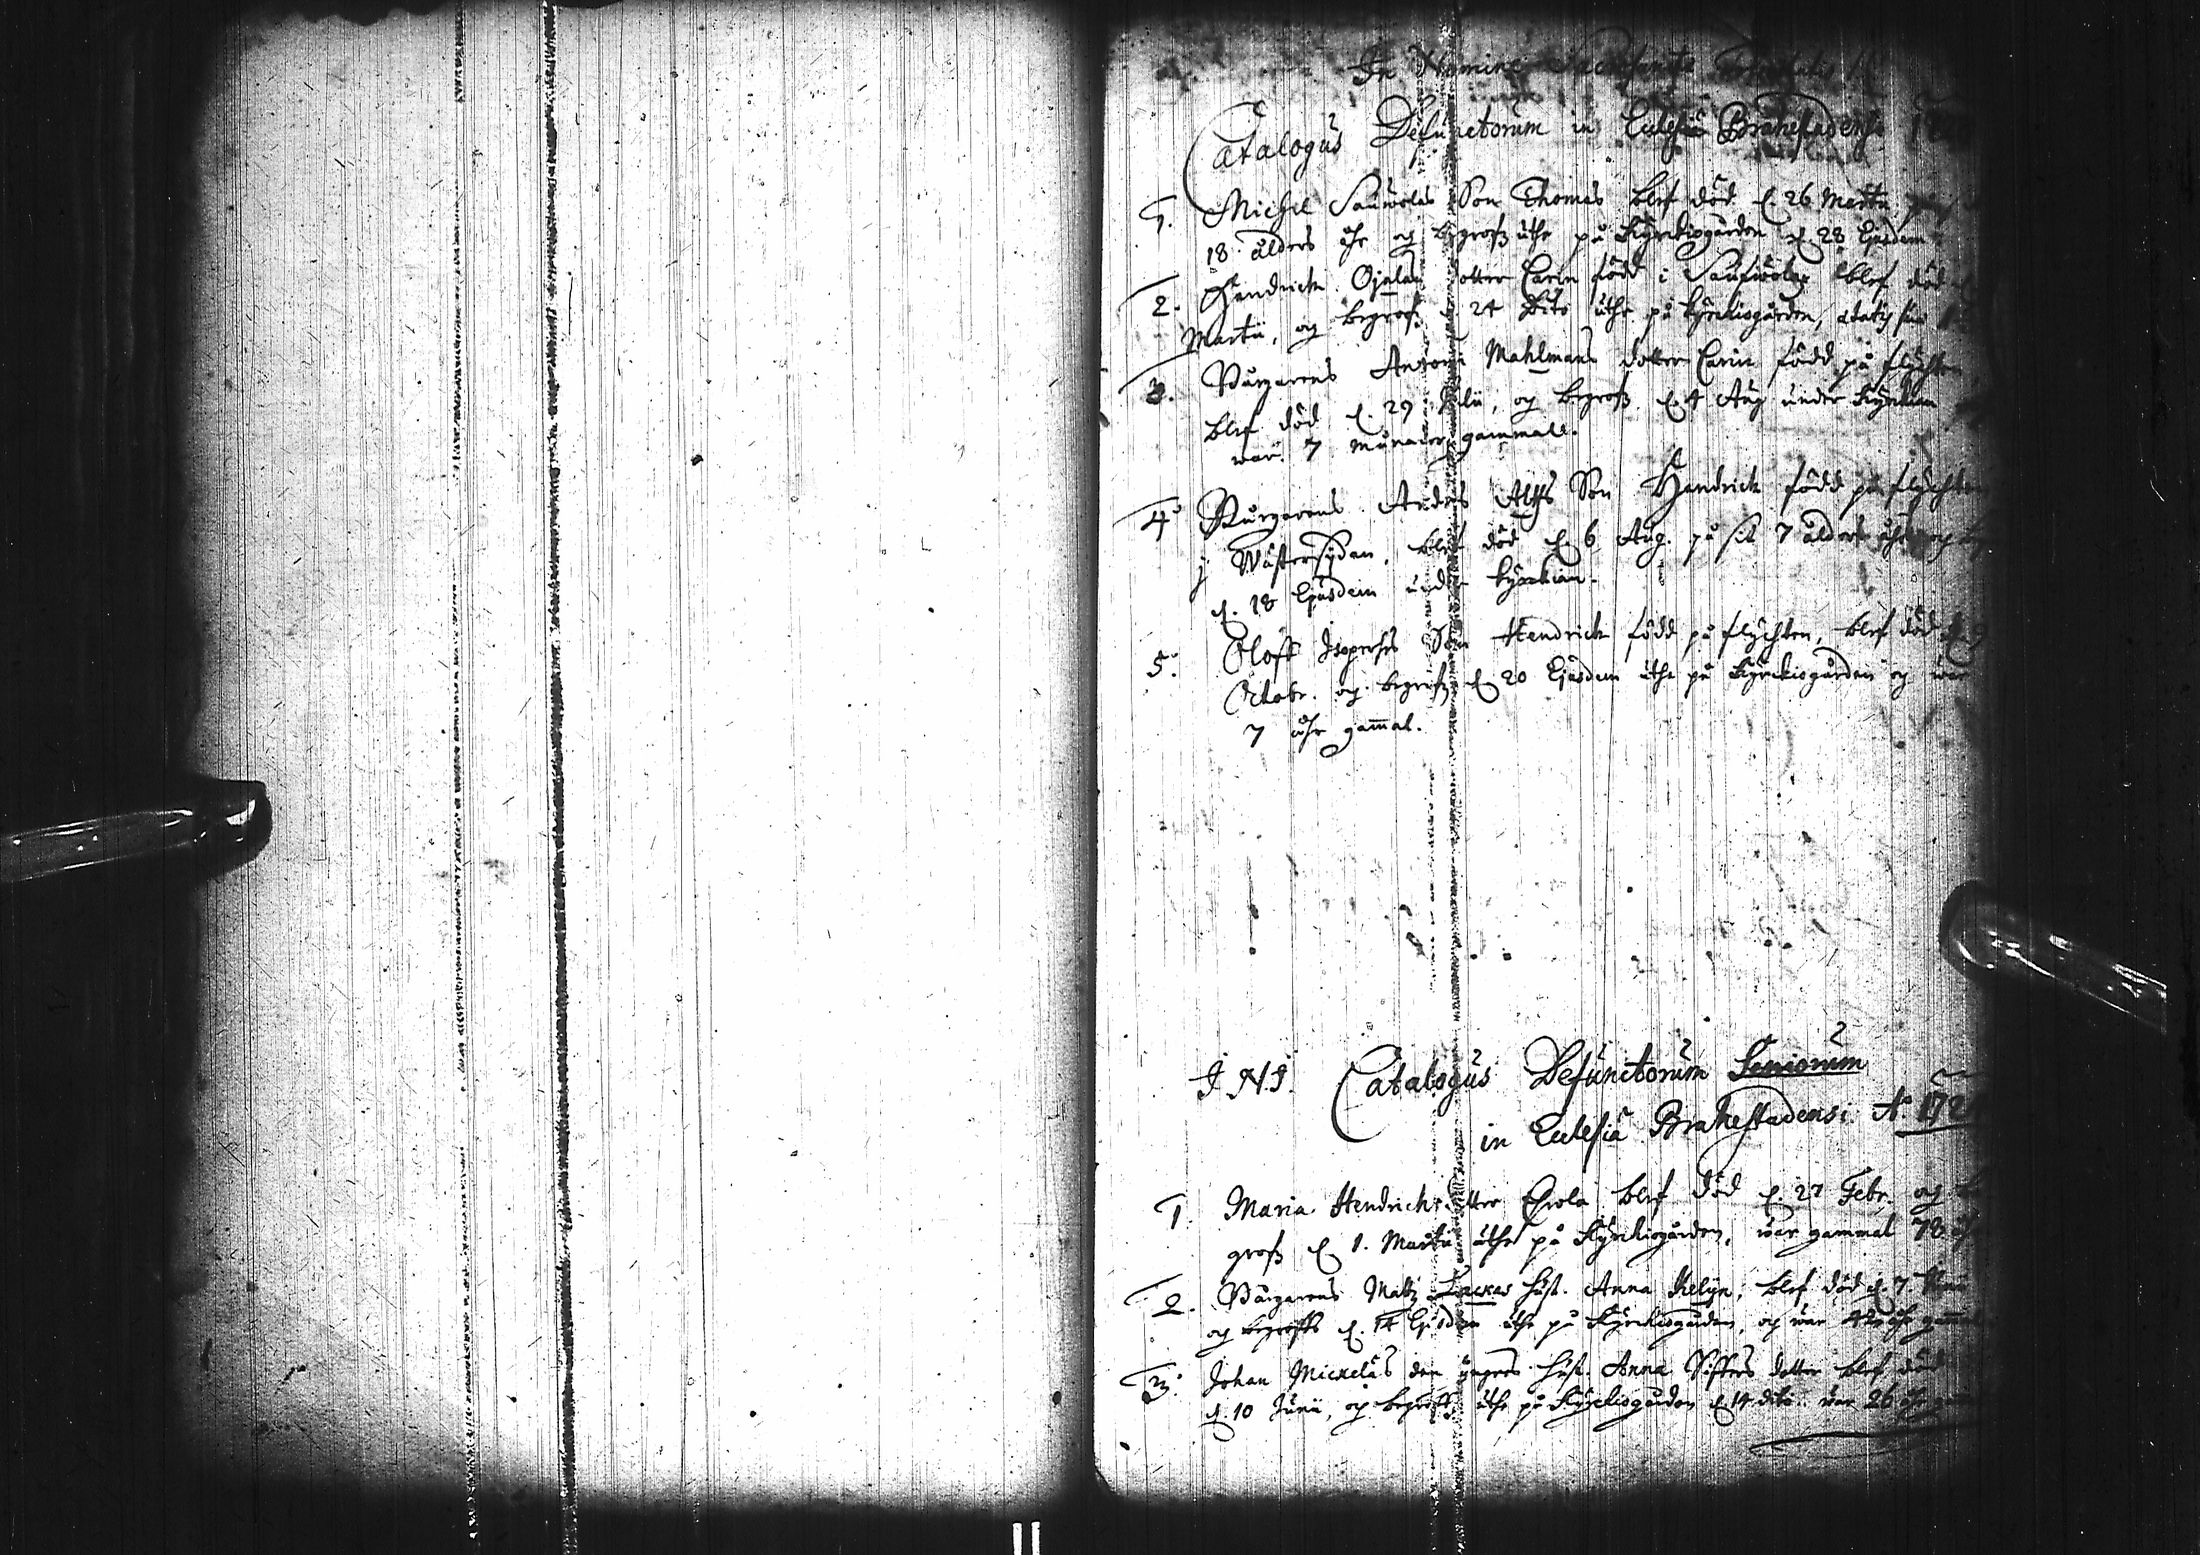 In Nomine
Catalogus Defunctorum in Eclesia Brahestadensi
1. Michel Sauwolas Son Thomas blef död d. 26 Martii
18 ålders åhr og begrofz uthe på Kyrckiogården d. 28 Ejusdem
2. Hendrich Ojalas dotter Carin född i blef död
Martii, og begrofz 24 Dito uthe på kyrckiogården,
3. Burgarens Mahlmans dotter Carin född på flychten
blef död d. 29 Julii, og begrofz d. 4 Aug under Kyrckian
war 7 månader gammall.
4. Burgarens Anders Son Hendrich född på flychten
j Wästersydan, blef död d. 6 Aug. på sit 7 ålders åhr og
d. 18 Ejusdem under kyrckian.
5. Oloff Son Hendrich född på flychten, blef död d.
Octobr. og begrofz d. 20 Ejusdem uthe på Kyrckiogården og war
7 åhr gam̅al.
I. N. J. Catalogus Defunctorum Seniorum
in Eclesia Brahestadensi Aº 172
1. Maria Hendrichs dotter blef död d. 27 Febr. og be
grofz d. 1. Martii uthe på Kyrckiogården, war gammal 78 åhr
2. Burgarens Matz Lackas hust. Anna Kelyn, blef död d. 7.
og begroffs d. 14 Ejusdem uthe på Kyrckiogården, og war åhr
3. Johan Mickelas den yngres hust. Anna Siffers dotter blef död
d. 10 Junii, og begroffs uthe på Kyrckiogården d. 14 dito war 26 åhr